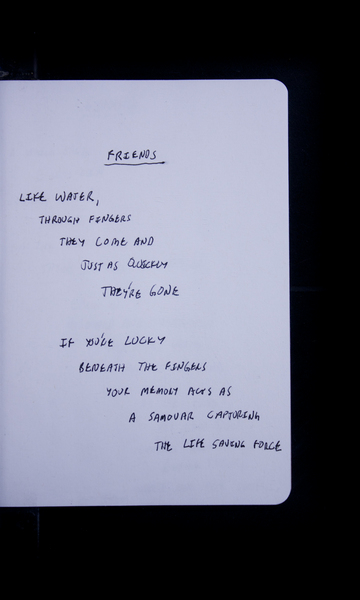 FRIENDS
LIKE WATER,
THROUGH FINGERS
THEY COME AND
JUST AS QUICKLY
THEY'RE GONE
IF YOU'RE LUCKY
BENEATH THE FINGERS
YOUR MEMORY ACTS AS
A SAMOVAR CAPTURING
THE LIFE SAVING FORCE